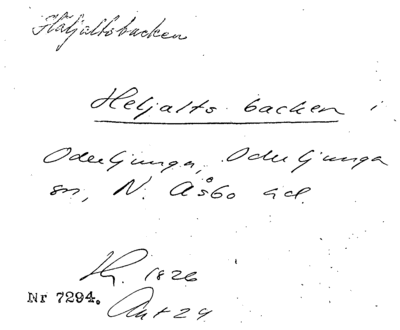 Häljaltsbacken
Heljalts backen i
Oderljunga, Oderljunga
sn, N. Åsbo hd.
Hj. 1826
Nr 7294. Akt 24